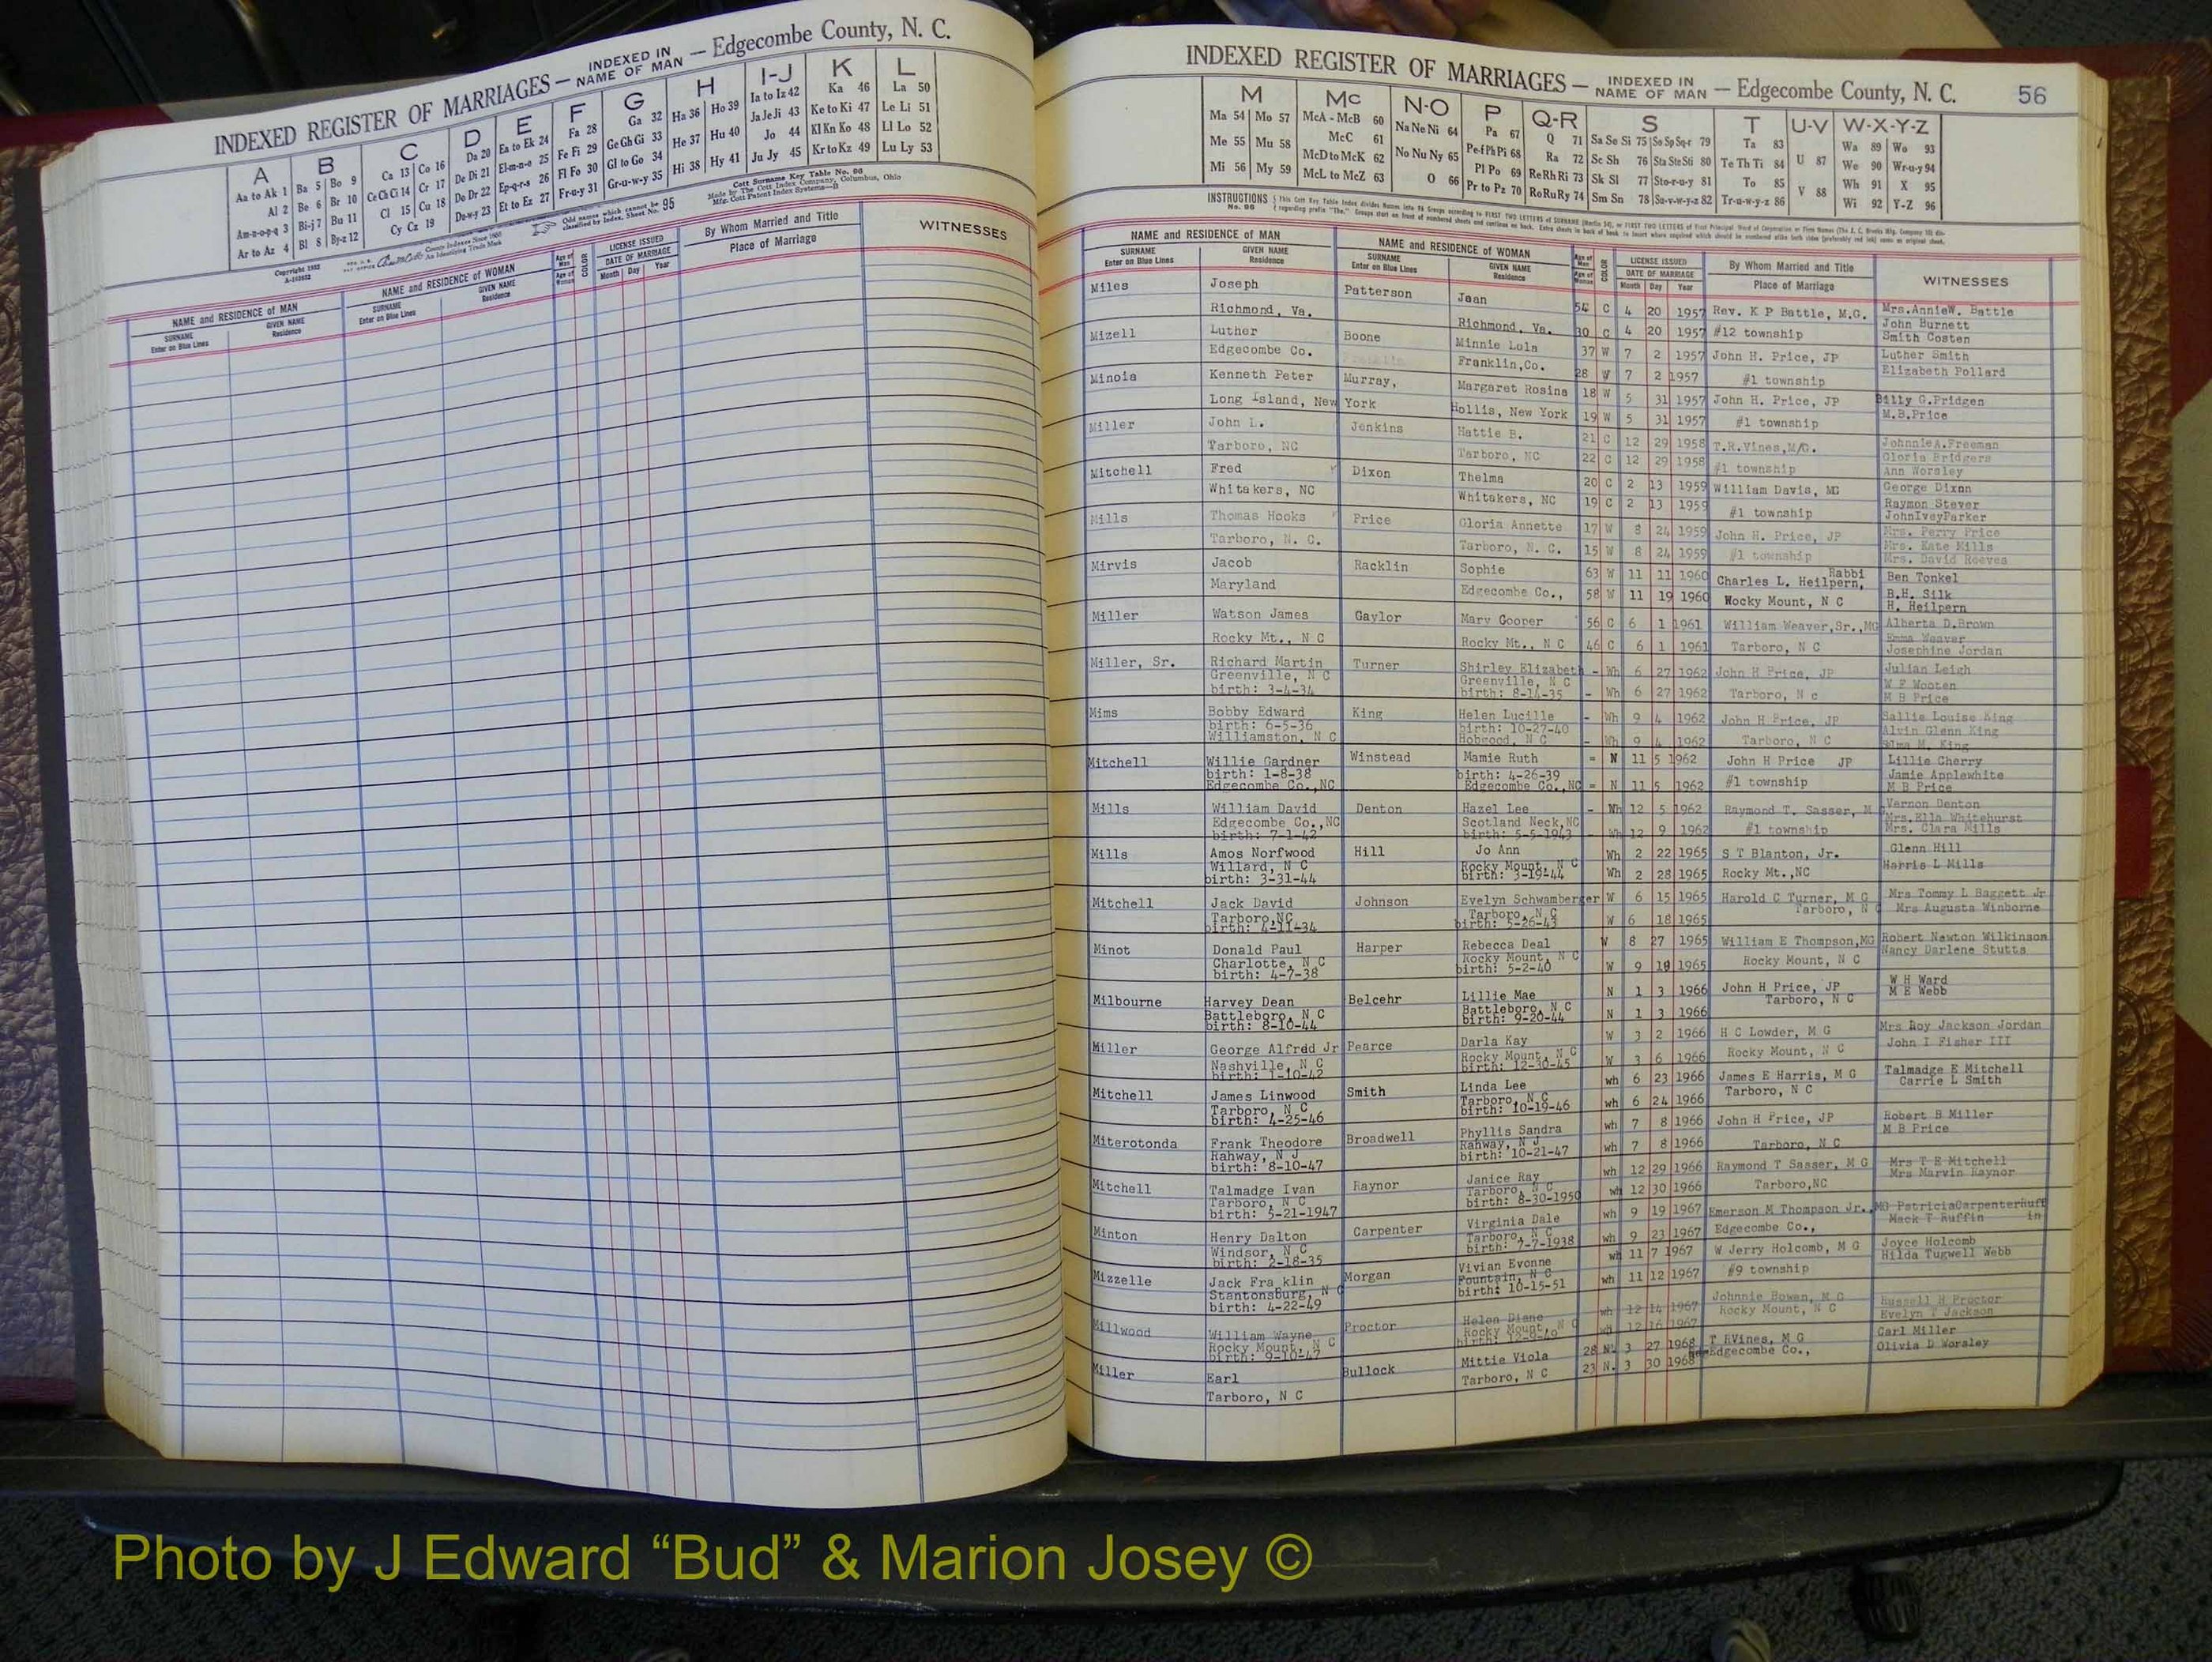 INDEXED REGISTER OF MARRIAGES — INDEXED IN NAME OF MAN — Edgecombe County, N. C.
A B C D E F G H I-J K L
Aa to Ak 1 Ba 5 Bo 9 Ca 13 Co 16 Da 20 Ea to Ek 24 Fa 28 Ga 32 Ha 36 Ho 39 Ia to Iz 42 Ka 46 La 50
Al 2 Be 6 Br 10 Ce Ch Ci 14 Cr 17 De Di 21 El-m-n-o 25 Fe Fi 29 Ge Gh Gi 33 He 37 Hu 40 Ja Je Ji 43 Ke to Ki 47 Le Li 51
Am-n-o-p-q 3 Bi-j 7 Bu 11 Cl 15 Cu 18 Do Dr 22 Ep-q-r-s 26 Fl Fo 30 Gl to Go 34 Hi 38 Hy 41 Jo 44 Kl Kn Ko 48 Ll Lo 52
Ar to Az 4 Bl 8 By-z 12 Cy Cz 19 Du-w-y 23 Et to Ez 27 Fr-u-y 31 Gr-u-w-y 35 Ju Jy 45 Kr to Kz 49 Lu Ly 53
NAME and RESIDENCE of MAN NAME and RESIDENCE of WOMAN LICENSE ISSUED By Whom Married and Title WITNESSES
SURNAME Enter on Blue Lines GIVEN NAME Residence SURNAME Enter on Blue Lines GIVEN NAME Residence Age of Man Age of Woman COLOR DATE OF MARRIAGE Month Day Year Place of Marriage
INDEXED REGISTER OF MARRIAGES — INDEXED IN NAME OF MAN — Edgecombe County, N. C. 56
M Mc N-O P Q-R S T U-V W-X-Y-Z
Ma 54 Mo 57 McA - McB 60 Na Ne Ni 64 Pa 67 Q 71 Sa Se Si 75 So Sp Sq-r 79 Ta 83 Wa 89 Wo 93
Me 55 Mu 58 McC 61 No Nu Ny 65 Pe-f Ph Pi 68 Ra 72 Sc Sh 76 Sta Ste Sti 80 Te Th Ti 84 U 87 We 90 Wr-u-y 94
Mi 56 My 59 McD to McK 62 O 66 Pl Po 69 Re Rh Ri 73 Sk Sl 77 Sto-r-u-y 81 To 85 V 88 Wh 91 X 95
McL to McZ 63 Pr to Pz 70 Ro Ru Ry 74 Sm Sn 78 Su-v-w-y-z 82 Tr-u-w-y-z 86 Wi 92 Y-Z 96
NAME and RESIDENCE OF MAN NAME and RESIDENCE of WOMAN LICENSE ISSUED By Whom Married and Title WITNESSES
SURNAME Enter on Blue Lines GIVEN NAME Residence SURNAME Enter on Blue Lines GIVEN NAME Residence Age of Man Age of Woman COLOR DATE OF MARRIAGE Month Day Year Place of Marriage
Miles Joseph Patterson Jean 54 C 4 20 1957 Rev. K P Battle, M.G. Mrs.AnnieW. Battle
Richmond, Va. Richmond, Va. 30 C 4 20 1957 #12 township John Burnett
Smith Costen
Mizell Luther Boone Minnie Lola 37 W 7 2 1957 John H. Price, JP Luther Smith
Edgecombe Co. Franklin,Co. 28 W 7 2 1957 #1 township Elizabeth Pollard
Minoia Kenneth Peter Murray, Margaret Rosina 18 W 5 31 1957 John H. Price, JP Billy G.Pridgen
Long Island, New York Hollis, New York 19 W 5 31 1957 #1 township M.B.Price
Miller John L. Jenkins Hattie B. 21 C 12 29 1958 T.R.Vines,M/G. JohnnieA.Freeman
Tarboro, NC Tarboro, NC 22 C 12 29 1958 #1 township Gloria Bridgers
Ann Worsley
Mitchell Fred Dixon Thelma 20 C 2 13 1959 William Davis, MG George Dixon
Whitakers, NC Whitakers, NC 19 C 2 13 1959 #1 township Raymon Stever
JohnIveyParker
Mills Thomas Hooks Price Gloria Annette 17 W 8 24 1959 John H. Price, JP Mrs. Perry Price
Tarboro, N. C. Tarboro, N. C. 15 W 8 24 1959 #1 township Mrs. Kate Mills
Mrs. David Reeves
Mirvis Jacob Racklin Sophie 63 W 11 11 1960 Charles L. Heilpern, Rabbi Ben Tonkel
Maryland Edgecombe Co., 58 W 11 19 1960 Rocky Mount, N C B.H. Silk
H. Heilpern
Miller Watson James Gaylor Mary Cooper 56 C 6 1 1961 William Weaver,Sr.,MG Alberta D.Brown
Rocky Mt., N C Rocky Mt., N C 46 C 6 1 1961 Tarboro, N C Emma Weaver
Josephine Jordan
Miller, Sr. Richard Martin Turner Shirley Elizabeth - Wh 6 27 1962 John H Price, JP Julian Leigh
Greenville, N C Greenville, N C W E Wooten
birth: 3-4-34 birth: 8-14-35 - Wh 6 27 1962 Tarboro, N c M B Price
Mims Bobby Edward King Helen Lucille - Wh 9 4 1962 John H Price, JP Sallie Louise King
birth: 6-5-36 birth: 10-27-40 Alvin Glenn King
Williamston, N C Hobgood, N C - Wh 9 4 1962 Tarboro, N C M. King
Mitchell Willie Gardner Winstead Mamie Ruth = N 11 5 1962 John H Price JP Lillie Cherry
birth: 1-8-38 birth: 4-26-39 Jamie Applewhite
Edgecombe Co.,NC Edgecombe Co.,NC = N 11 5 1962 #1 township M B Price
Mills William David Denton Hazel Lee - Wh 12 5 1962 Raymond T. Sasser, M Vernon Denton
Edgecombe Co.,NC Scotland Neck,NC Mrs.Ella Whitehurst
birth: 7-1-42 birth: 5-5-1943 Wh 12 9 1962 #1 township Mrs. Clara Mills
Mills Amos Norfwood Hill Jo Ann Wh 2 22 1965 S T Blanton, Jr. Glenn Hill
Willard, N C Rocky Mount, N C Harris L Mills
birth: 3-31-44 birth: 3-19-44 Wh 2 28 1965 Rocky Mt.,NC
Mitchell Jack David Johnson Evelyn Schwamberger W 6 15 1965 Harold C Turner, M G Mrs Tommy L Baggett Jr
Tarboro,NC Tarboro, N C Tarboro, N C Mrs Augusta Winborne
birth: 4-11-34 birth: 5-26-43 W 6 18 1965
Minot Donald Paul Harper Rebecca Deal W 8 27 1965 William E Thompson,MG Robert Newton Wilkinson
Charlotte, N C Rocky Mount, N C Rocky Mount, N C Nancy Darlene Stutts
birth: 4-7-38 birth: 5-2-40 W 9 18 1965
Milbourne Harvey Dean Belcehr Lillie Mae N 1 3 1966 John H Price, JP W H Ward
Battleboro, N C Battleboro, N C Tarboro, N C M E Webb
birth: 8-10-44 birth: 9-20-44 N 1 3 1966
Miller George Alfred Jr Pearce Darla Kay W 3 2 1966 H C Lowder, M G Mrs Roy Jackson Jordan
Nashville, N C Rocky Mount, N C Rocky Mount, N C John I Fisher III
birth: 1-10-42 birth: 12-30-45 W 3 6 1966
Mitchell James Linwood Smith Linda Lee wh 6 23 1966 James E Harris, M G Talmadge E Mitchell
Tarboro, N C Tarboro, N C Tarboro, N C Carrie L Smith
birth: 4-25-46 birth: 10-19-46 wh 6 24 1966
Miterotonda Frank Theodore Broadwell Phyllis Sandra wh 7 8 1966 John H Price, JP Robert B Miller
Rahway, N J Rahway, N J M B Price
birth: 8-10-47 birth: 10-21-47 wh 7 8 1966 Tarboro, N C
Mitchell Talmadge Ivan Raynor Janice Ray wh 12 29 1966 Raymond T Sasser, M G Mrs T E Mitchell
Tarboro, N C Tarboro, N C Tarboro,NC Mrs Marvin Raynor
birth: 5-21-1947 birth: 8-30-1950 wh 12 30 1966
Minton Henry Dalton Carpenter Virginia Dale wh 9 19 1967 Emerson M Thompson Jr.,MG PatriciaCarpenterRuff
Windsor, N C Tarboro, N C Mack T Ruffin in
birth: 2-18-35 birth: 7-7-1938 wh 9 23 1967 Edgecombe Co.,
Mizzelle Jack Fra klin Morgan Vivian Evonne wh 11 7 1967 W Jerry Holcomb, M G Joyce Holcomb
StantonsBurg, N C Fountain, N C Hilda Tugwell Webb
birth: 4-22-49 birth: 10-15-51 wh 11 12 1967 #9 township
Millwood William Wayne Proctor Helen Diane wh 12 14 1967 Johnnie Bowen, M G Russell H Proctor
Rocky Mount, N C Rocky Mount, N C Rocky Mount, N C Evelyn T Jackson
birth: 9-10-47 wh 12 16 1967
Miller Earl Bullock Mittie Viola 28 N. 3 27 1968 T RVines, M G Carl Miller
Tarboro, N C Tarboro, N C 23 N. 3 30 1968 Edgecombe Co., Olivia D Worsley
Photo by J Edward “Bud” & Marion Josey ©